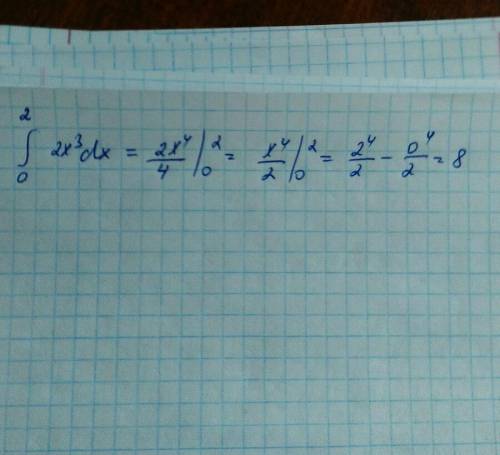 ∫₀² 2x³dx = 2x⁴/4 |₀² = x⁴/2 |₀² = 2⁴/2 - 0⁴/2 = 8